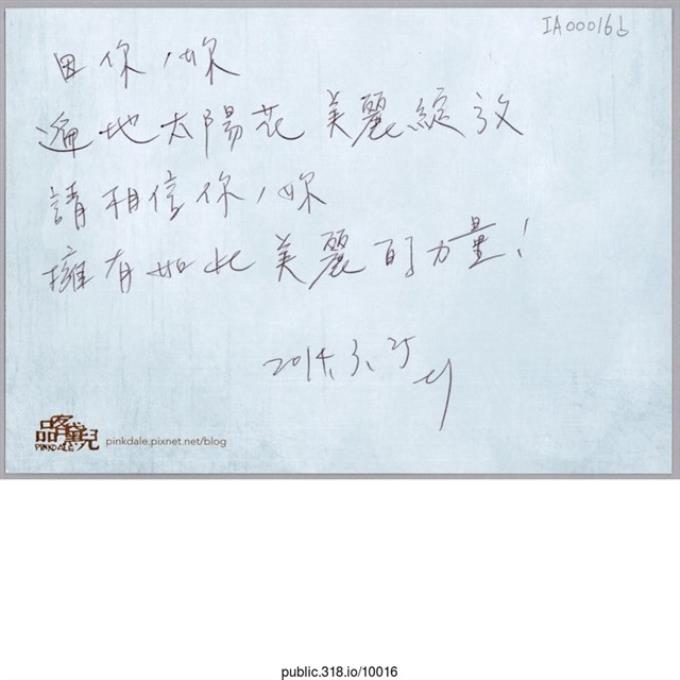 IA00016b
因你/妳
遍地太陽花美麗綻放
請相信你/妳
擁有如此美麗的力量!
2014.3.25
品客黛兒
PINKDALE
pinkdale.pixnet.net/blog
public.318.io/10016